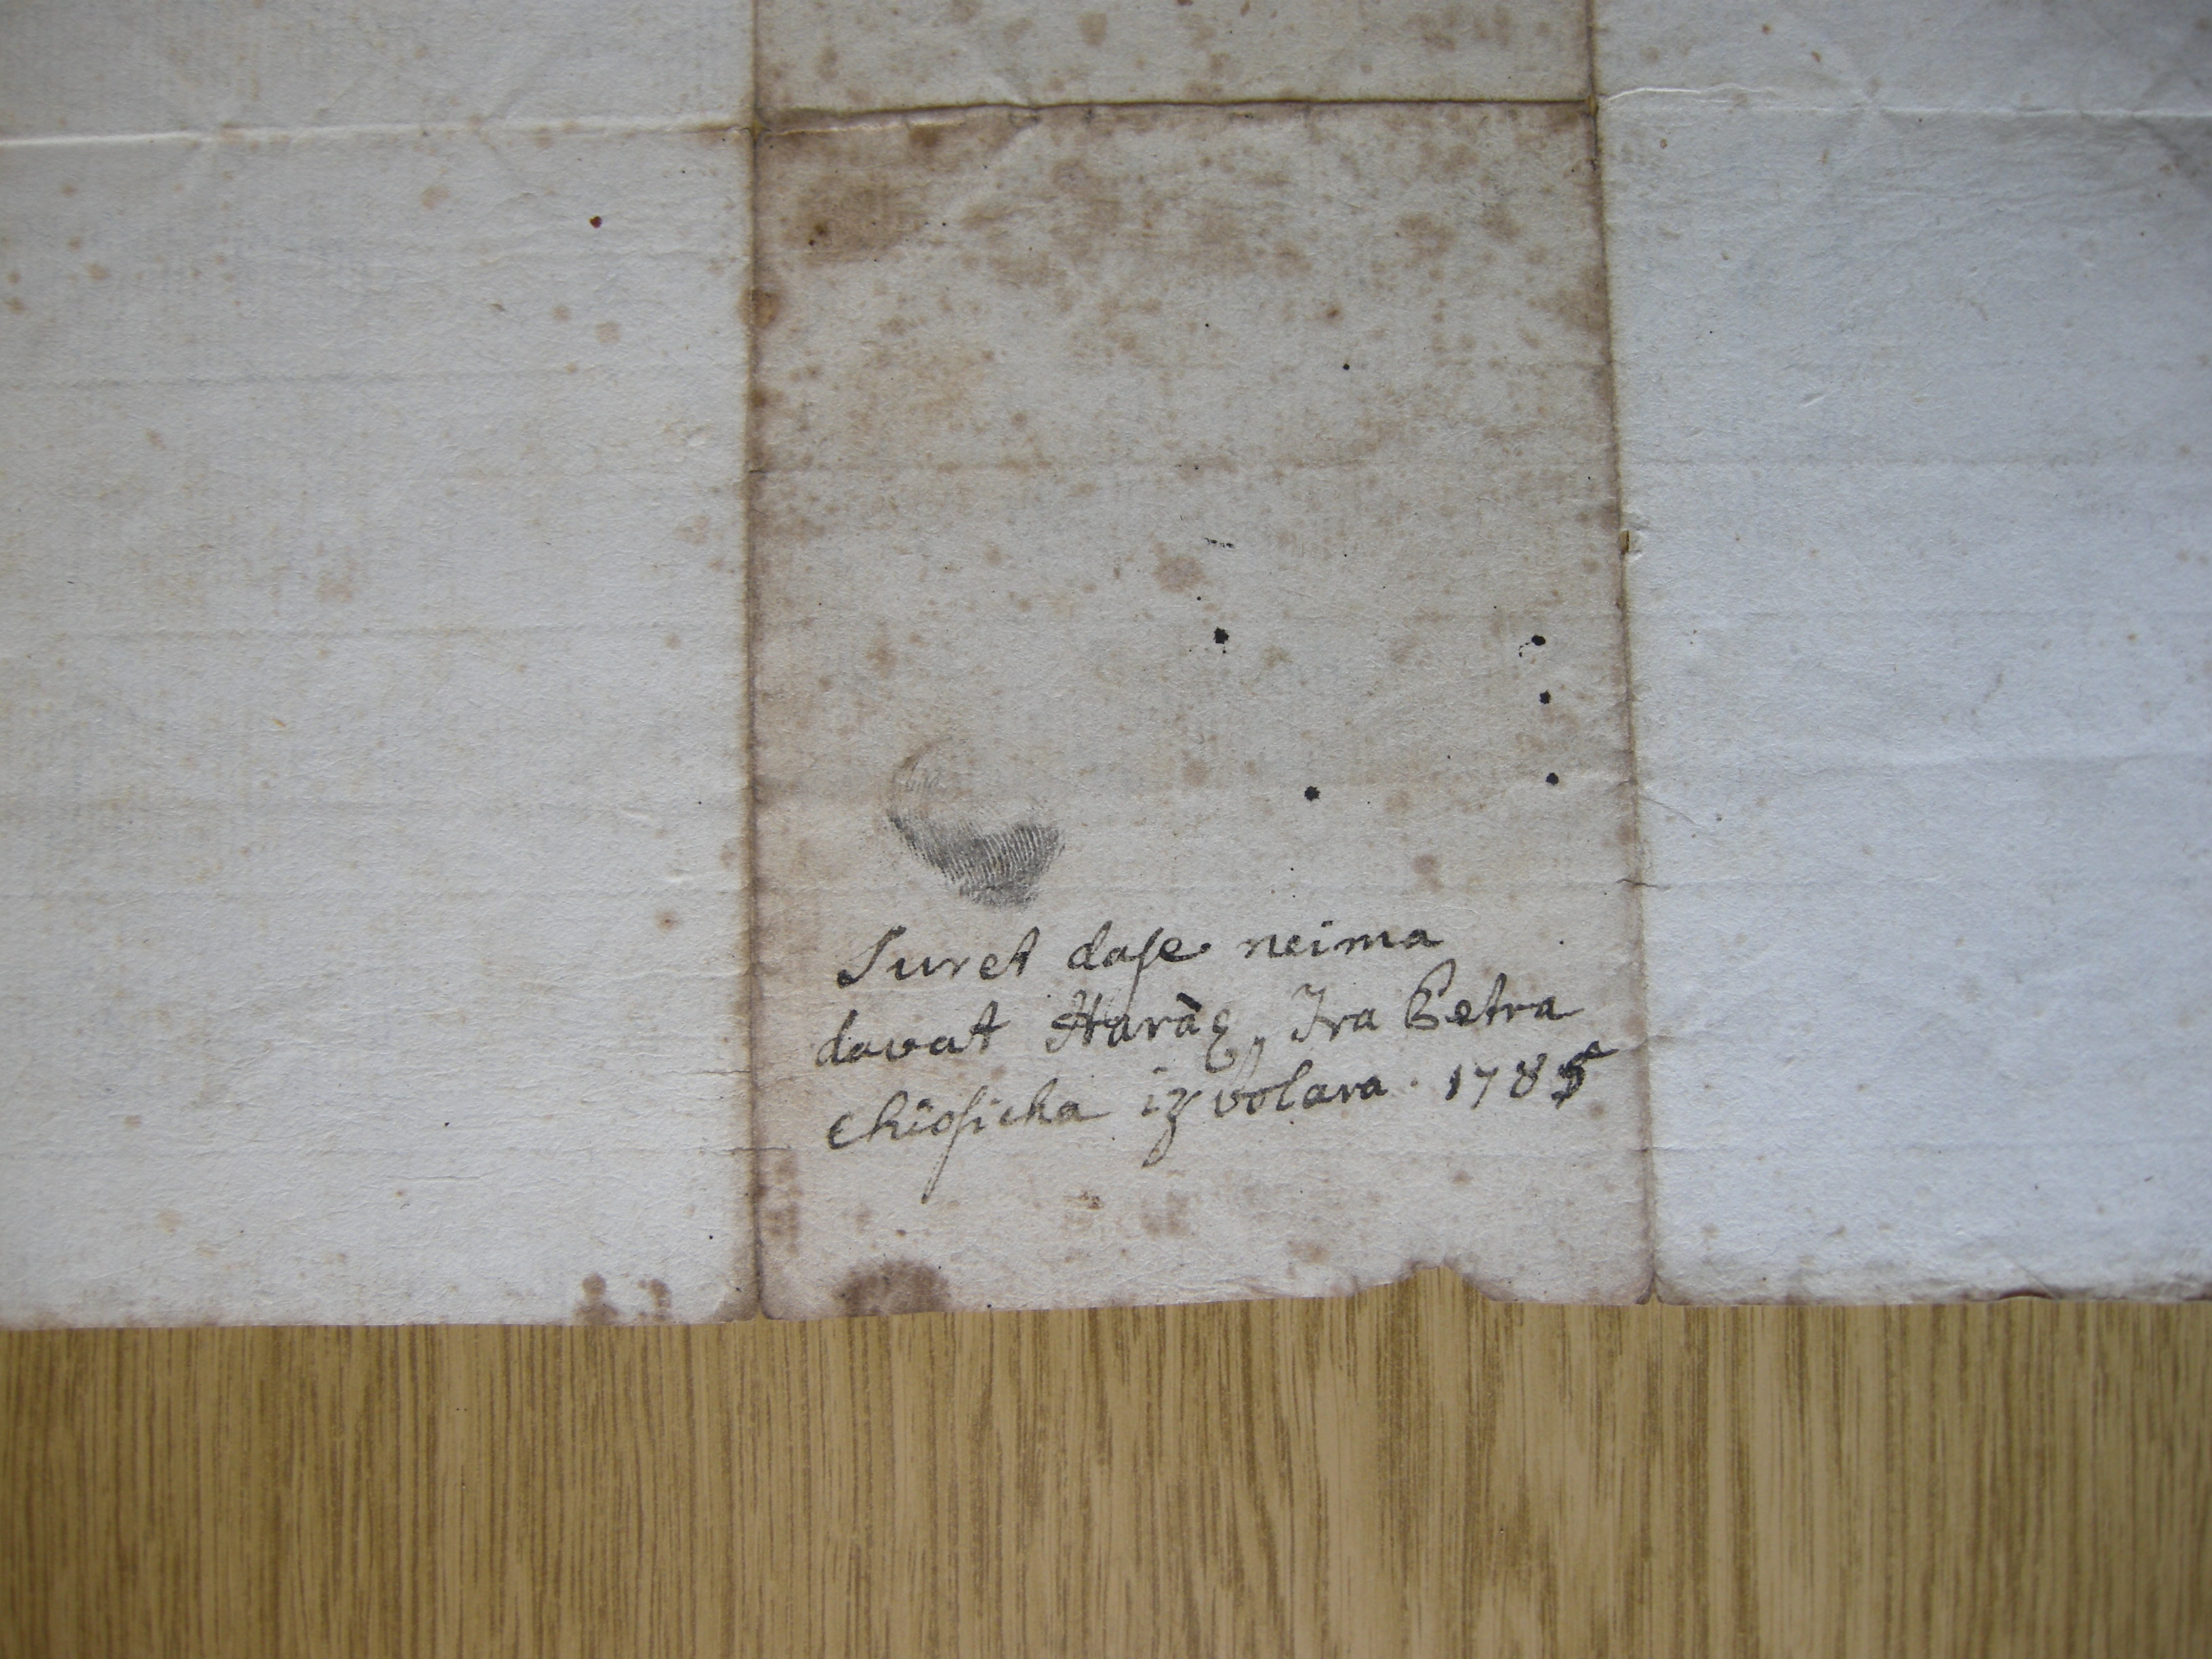 Suret dase neima
davat Haraç, Fra Petra
chiosicha iz volara · 1785